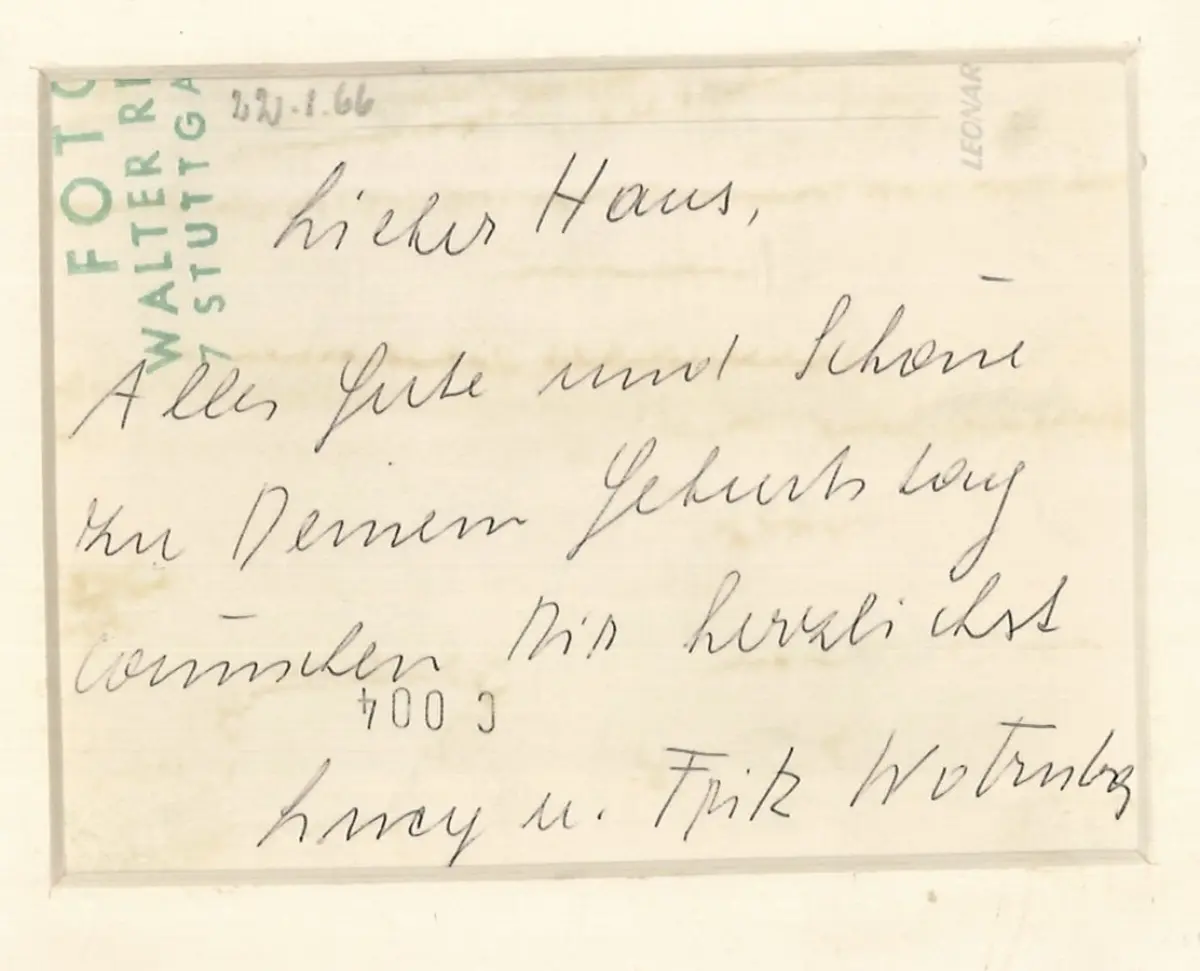 FOTO
WALTER
7 STUTTGA
.1.66
LEONAR
Lieber Hans,
Alles Gute und Schöne
zu Deinem Geburtstag
wünschen Dir herzlichst
C 004
Lucy u. Fritz Wotruba